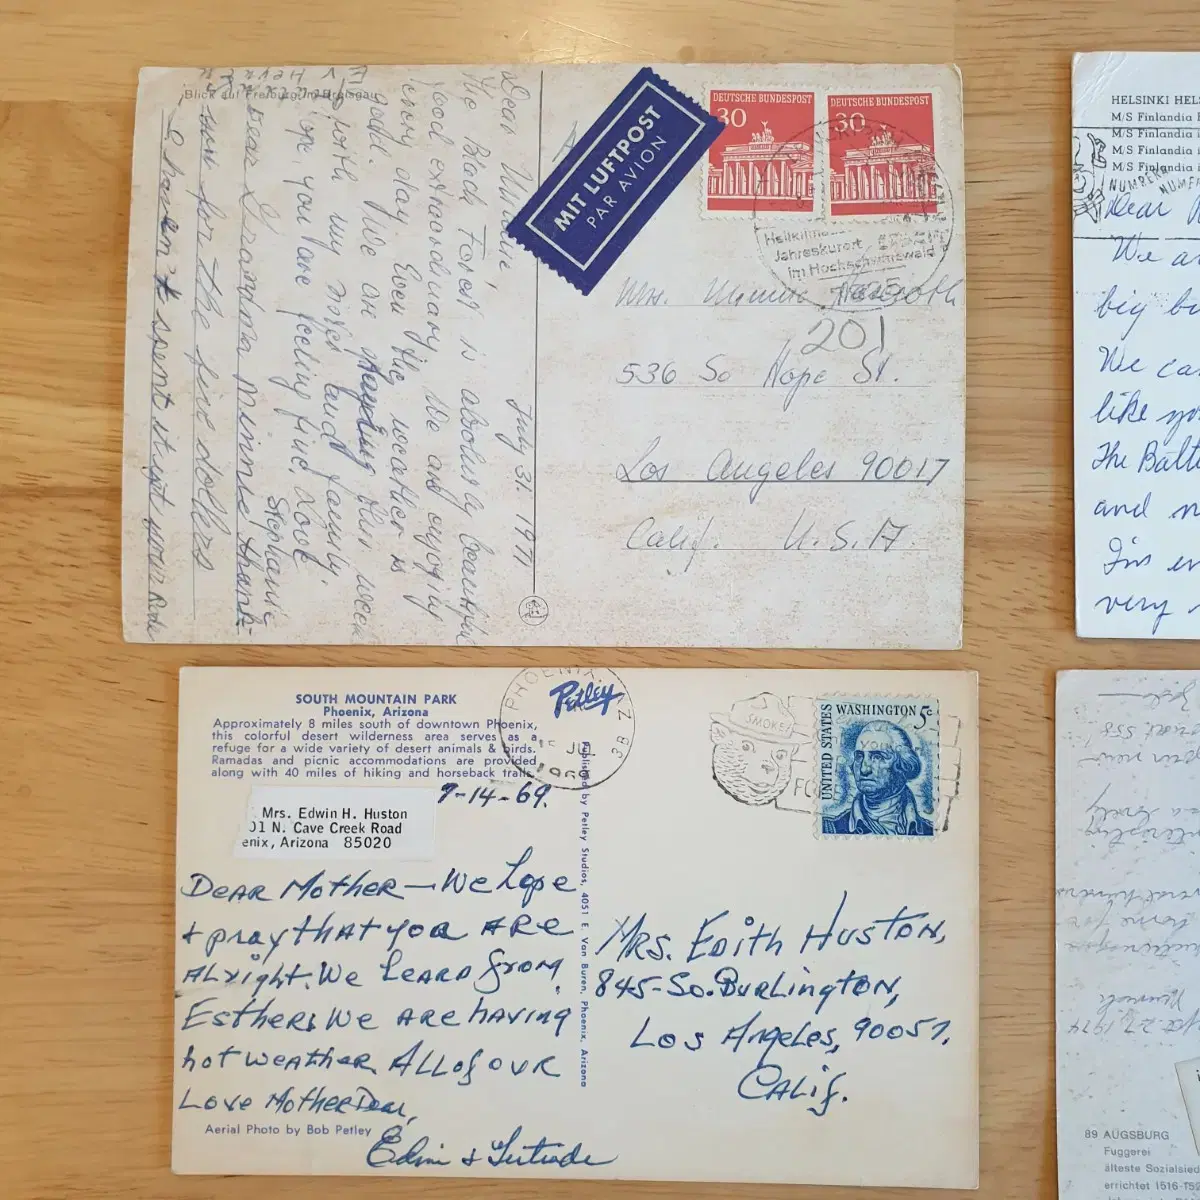 Blick auf Freiburg im Breisgau
July 31. 1971
Dear Minnie,
The Black Forest is absolutely beautiful
and extraordinary. We are enjoying
every day. Even the weather is
good. We are this week
with my sister and family.
Hope you are feeling fine. Love
Stephanie
Dear Grandma Minnie thank
you for the five dollars
I haven't spent it yet your
MIT LUFTPOST
PAR AVION
DEUTSCHE BUNDESPOST
30
DEUTSCHE BUNDESPOST
30
Jahreskurort
im Hochschwarzwald
Mrs. Minnie
201
536 So Hope St.
Los Angeles 90017
Calif. U.S.A.
SOUTH MOUNTAIN PARK
Phoenix, Arizona
Approximately 8 miles south of downtown Phoenix,
this colorful desert wilderness area serves as a
refuge for a wide variety of desert animals & birds.
Ramadas and picnic accommodations are provided
along with 40 miles of hiking and horseback trails.
Petley
PHOENIX, AZ
1969
7-14-69.
Mrs. Edwin H. Huston
01 N. Cave Creek Road
enix, Arizona 85020
Dear Mother - We hope
+ pray that you are
alright. We heard from
Esther. We are having
hot weather. All of our
Love Mother Dear,
Edwin + Gertrude
Aerial Photo by Bob Petley
Published by Petley Studios, 4051 E. Van Buren, Phoenix, Arizona
SMOKEY
UNITED STATES
WASHINGTON 5c
Mrs. Edith Huston,
845-So. Burlington,
Los Angeles, 90057,
Calif.
HELSINKI HEL
M/S Finlandia
M/S Finlandia
M/S Finlandia i
M/S Finlandia i
Dear
We a
big b
We ca
like yo
The Balt
and n
I'm e
very
89 AUGSBURG
Fuggerei
älteste Sozialsied
errichtet 1516-152